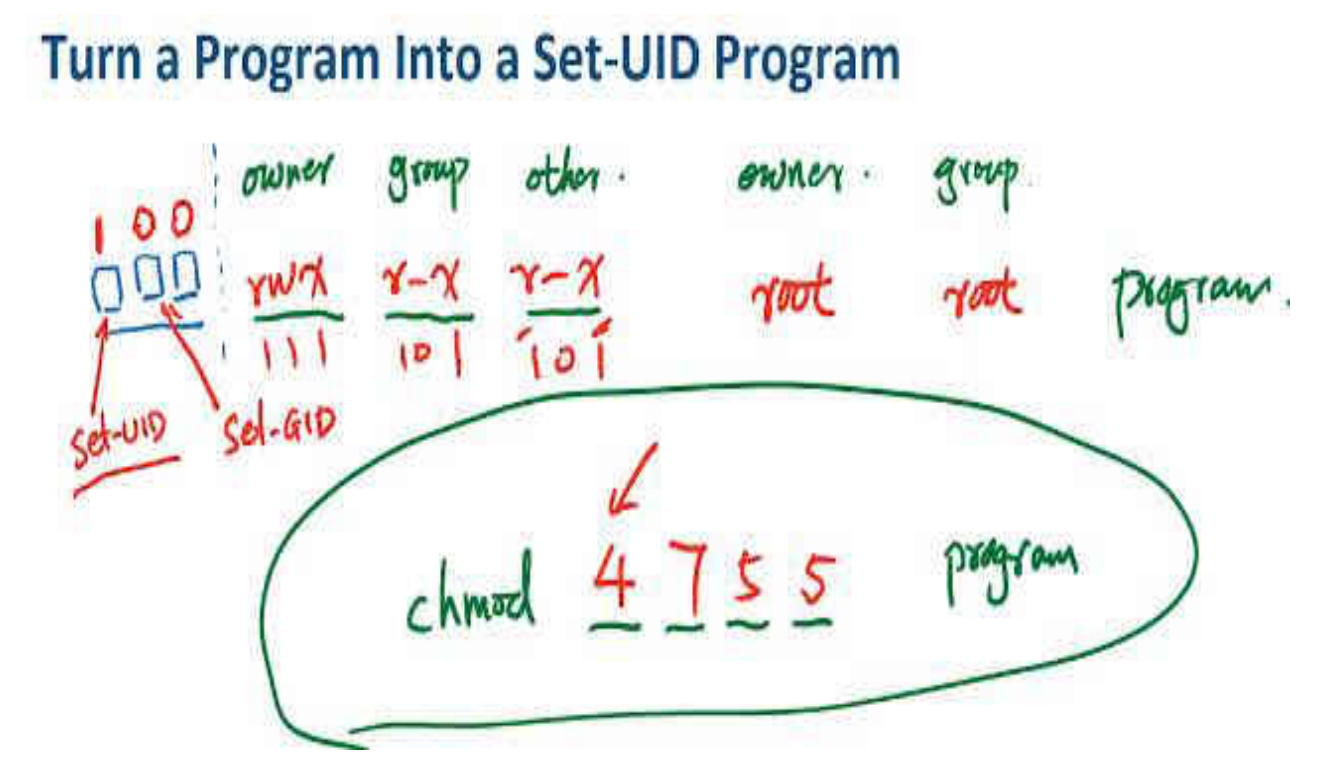 Turn a Program Into a Set-UID Program
owner group other. owner. group
1 0 0
rwx r-x r-x root root program.
111 101 101
Set-UID Set-GID
chmod 4 7 5 5 program